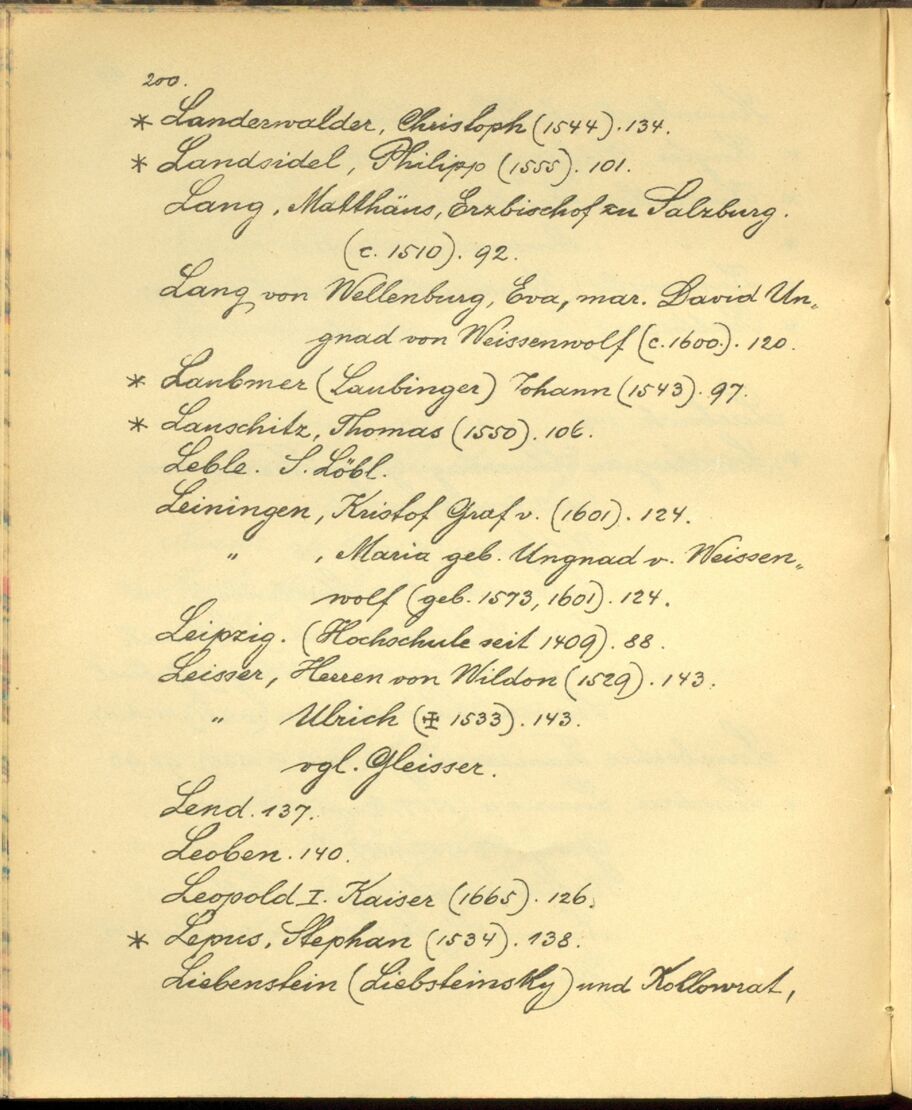 200.
* Landerwalder, Christoph (1544). 134.
* Landsidel, Philipp (1555). 101.
Lang, Matthäus, Erzbischof zu Salzburg.
(c. 1510). 92.
Lang von Wellenburg, Eva, mar. David Un„
gnad von Weissenwolf (c. 1600). 120.
* Laubmer (Laubinger) Johann (1543). 97.
* Lauschitz, Thomas (1550). 106.
Leble. S. Löbl.
Leiningen, Kristof Graf v. (1601). 124.
„ , Maria geb. Ungnad v. Weissen„
wolf (geb. 1573, 1601). 124.
Leipzig. (Hochschule seit 1409). 88.
Leisser, Herren von Wildon (1529). 143.
„ Ulrich (✠ 1533). 143.
vgl. Gleisser.
Lend. 137.
Leoben. 140.
Leopold I. Kaiser (1665). 126.
* Lepus, Stephan (1534). 138.
Liebenstein (Liebsteinsky) und Kollowrat,